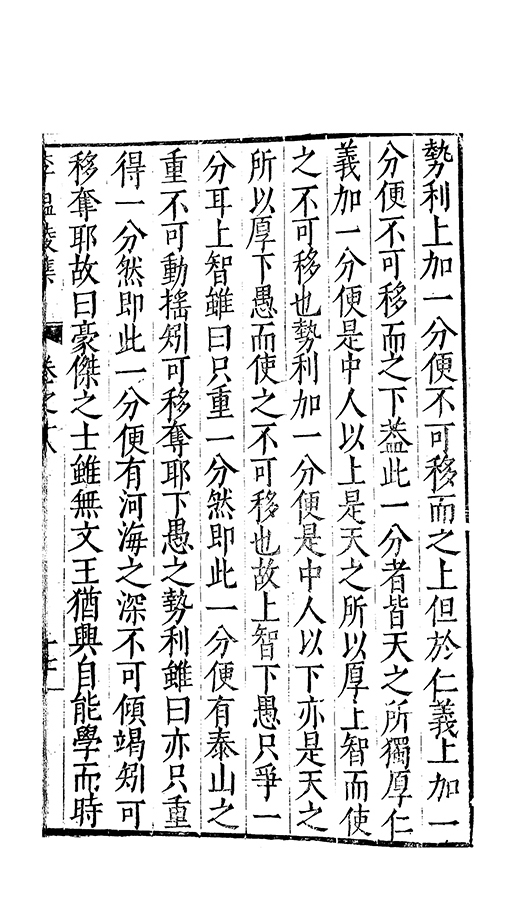 勢利上加一分便不可移而之上但於仁義上加一
分便不可移而之下葢此一分者皆天之所獨厚仁
義加一分便是中人以上是天之所以厚上智而使
之不可移也勢利加一分便是中人以下亦是天之
所以厚下愚而使之不可移也故上智下愚只爭一
分耳上智雖曰只重一分然即此一分便有泰山之
重不可動揺矧可移奪耶下愚之勢利雖曰亦只重
得一分然即此一分便有河海之深不可傾竭矧可
移奪耶故曰豪傑之士雖無文王猶興自能學而時
李温陵集 卷之十八